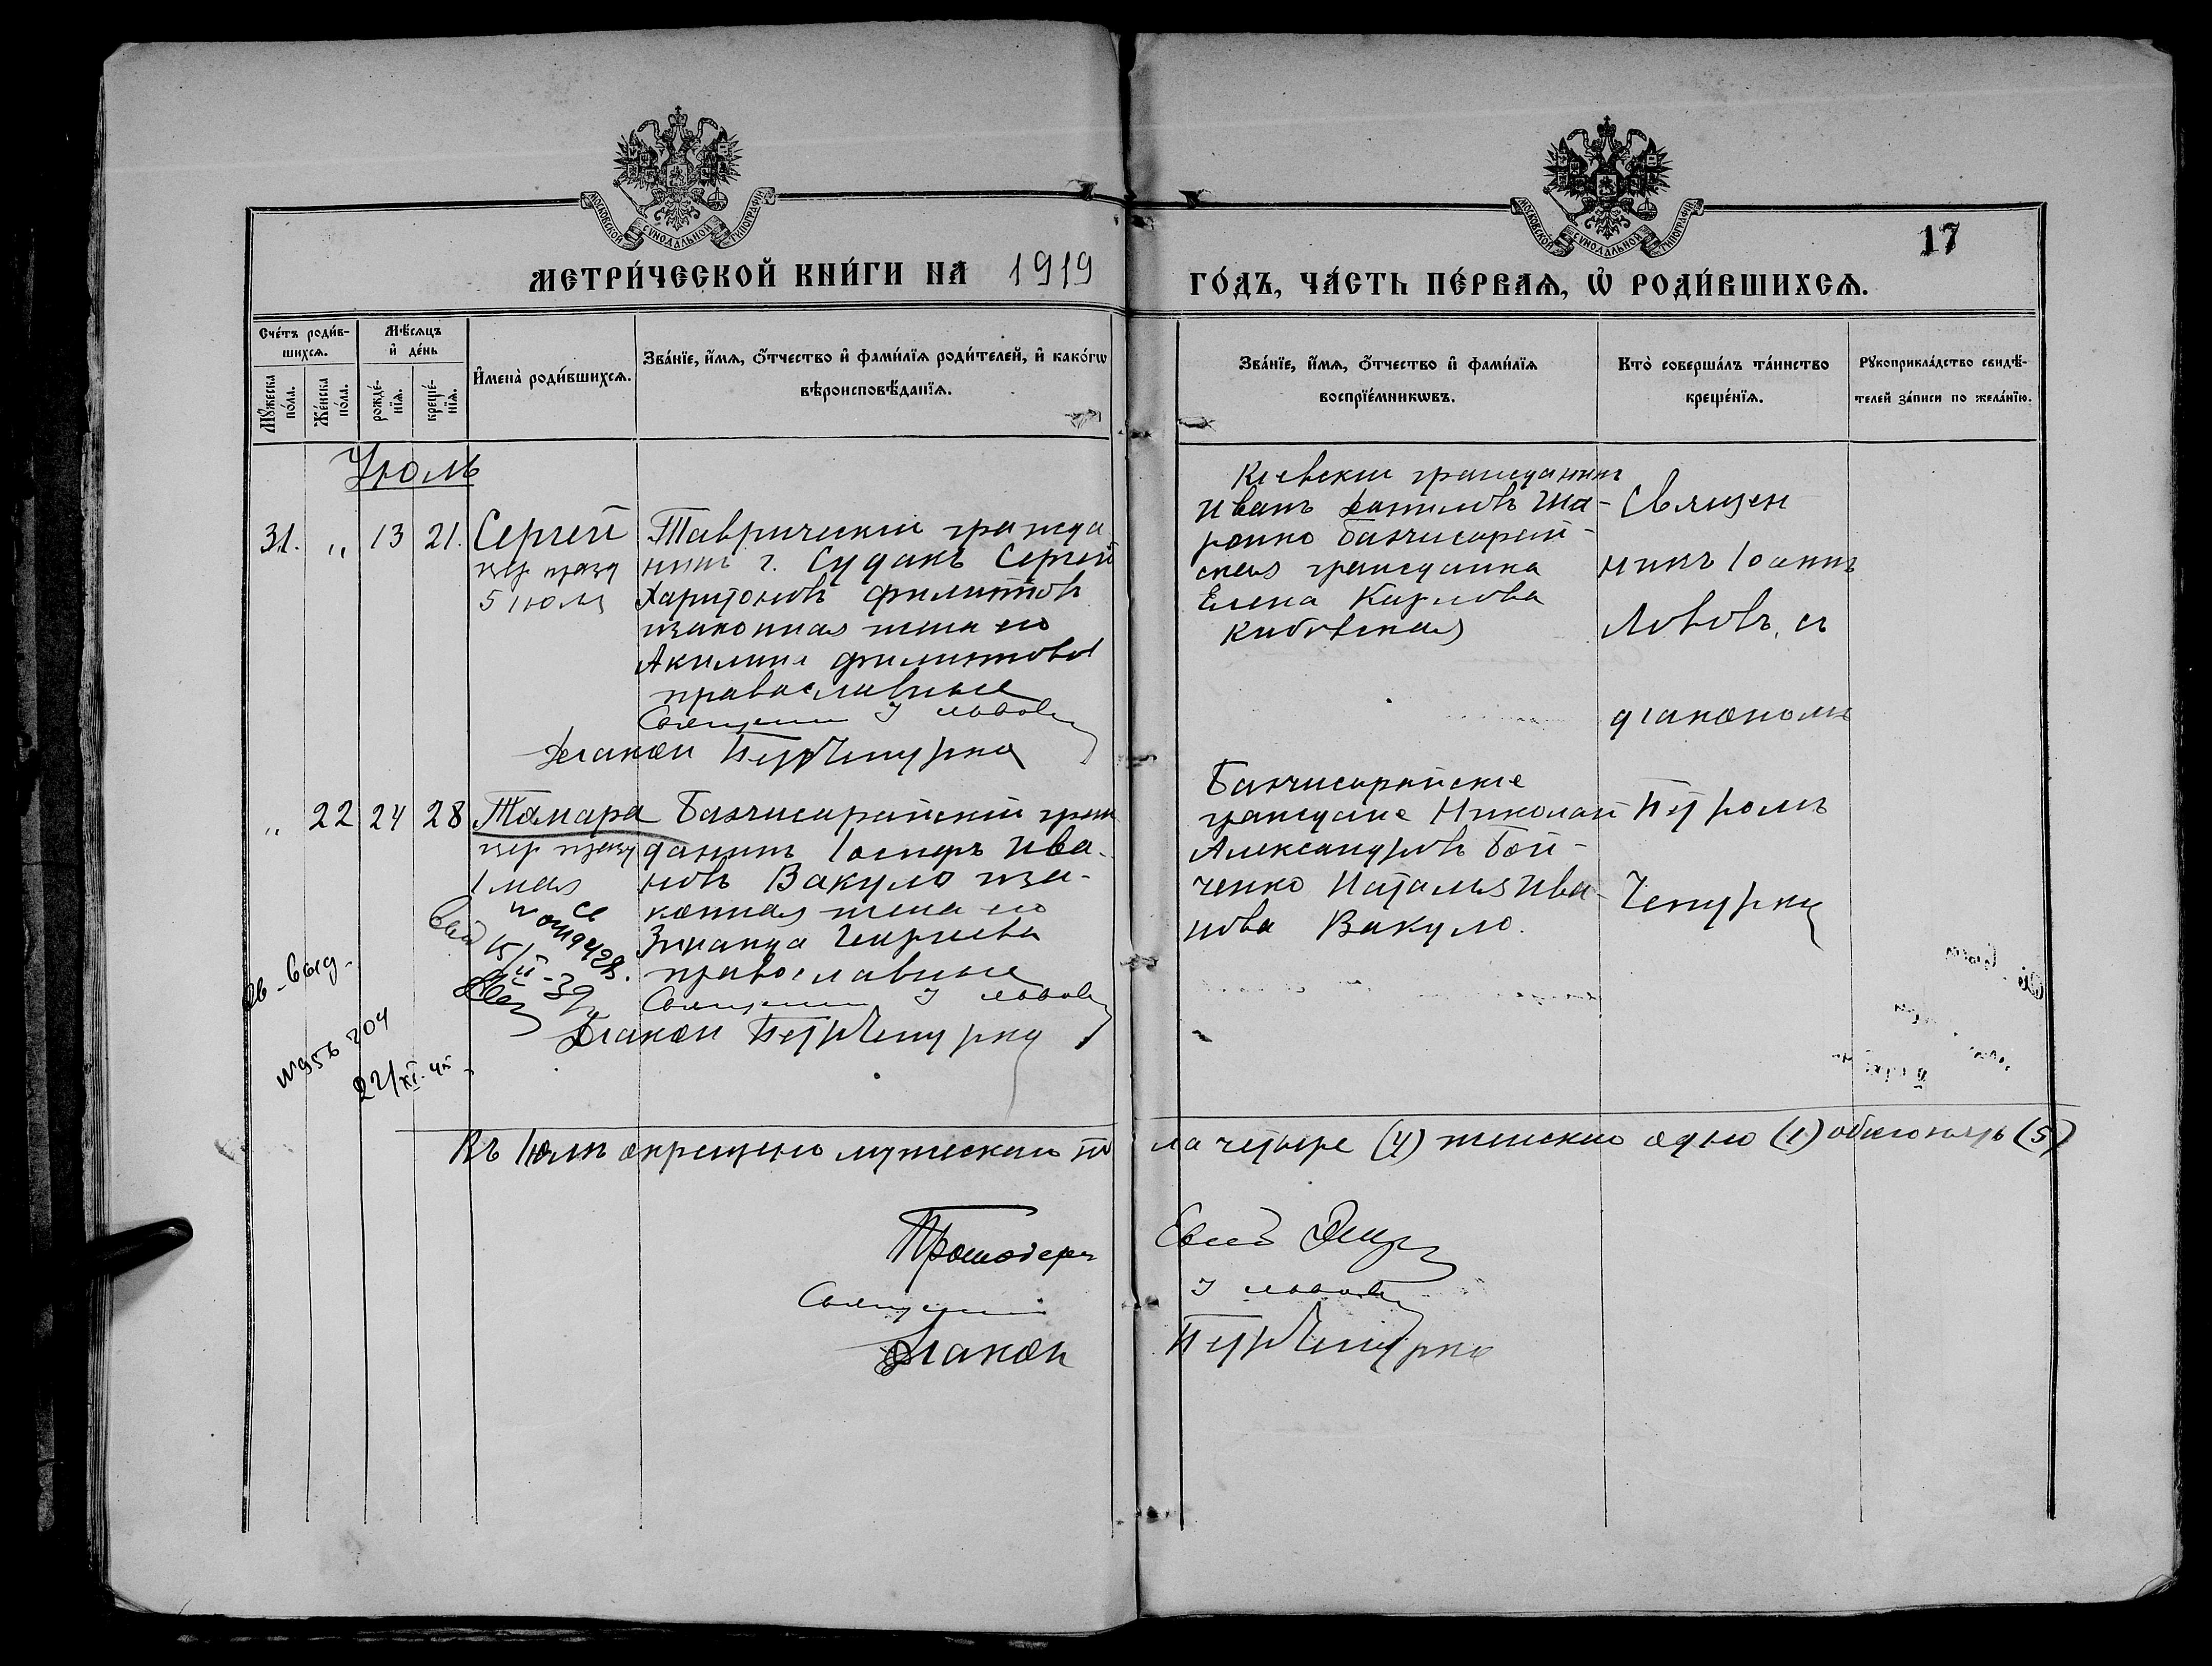 МОСКОВСКОЙ СѴНОДАЛЬНОЙ ТИПОГРАФІИ
МОСКОВСКОЙ СѴНОДАЛЬНОЙ ТИПОГРАФІИ
17
МЕТРИ́ЧЕСКОЙ КНИ́ГИ НА 1919
ГО́ДЪ, ЧА́СТЬ ПЕ́РВАѦ, Ѡ҆ РОДИ́ВШИХСѦ.
Сче́тъ роди́в-
шихсѧ.
Мꙋ́жеска по́ла.
Же́нска по́ла.
Мѣ́сѧцъ
и҆ де́нь
рожде́-
нїѧ.
креще́-
нїѧ.
И҆мена̀ роди́вшихсѧ.
Зва́нїе, и҆́мѧ, ѻ҆́тчество и҆ фами́лїѧ роди́телей, и҆ како́гѡ
вѣроисповѣ́данїѧ.
Зва́нїе, и҆́мѧ, ѻ҆́тчество и҆ фами́лїѧ
воспрїе́мникѡвъ.
Кто̀ соверша́лъ та́инство
креще́нїѧ.
Рꙋкоприкла́дство свидѣ́-
телей за́писи по жела́нїю.
Июль
31. „ 13 21. Сергей
5 июля
Таврический гражда
нинъ г. Судакъ Сергей
Харитоновъ Филиппов
изаконная жена его
Акилина Филиппова
православные
Священник І Львов
Диакон Петр Чепурко
Киевский гражданинъ
Иванъ Даниловъ Ша-
ронко Бахчисарай-
ская гражданка
Елена Карлова
Священ
никъ Іоаннъ
Львовъ, съ
діакономъ
Петромъ
Чепурко
„ 22 24 28 Тамара
1 мая
Бахчисарайский граж
данинъ Іосифъ Ива-
новъ Вакуло иза-
конная жена его
Зинаида Георгиева
православные
Священник І Львов
Диакон Петр Чепурко
Бахчисарайские
граждане Николай
Александровъ Бой-
ченко Наталья Ива-
нова Вакуло.
22/XI-
Въ Іюлѣ окрещено мужескаго по
ла четыре (4) женскаго одно (1) обоего пять (5)
Священник І Львов
Диакон Петр Чепурко